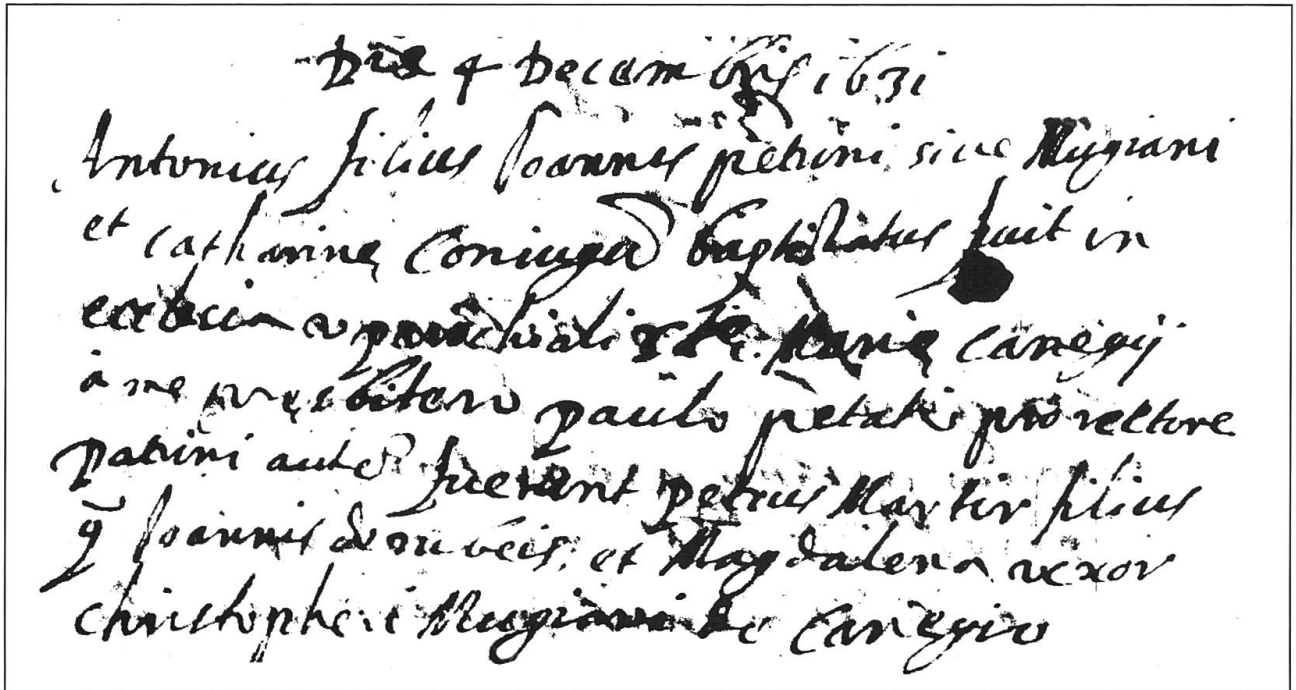 Die 4 Decembris 1631
Antonius filius Joannis petrini sive Mugiani
et Catharinę Coniugū baptizatus fuit in
ecclesia parochiali Stę. Marię Canegij
à me presbitero paulo petate prorectore
patrini autē fuerunt petrus Martir filius
q̄ Joannis et Magdalena uxor
christophori Mugiani de Canegio